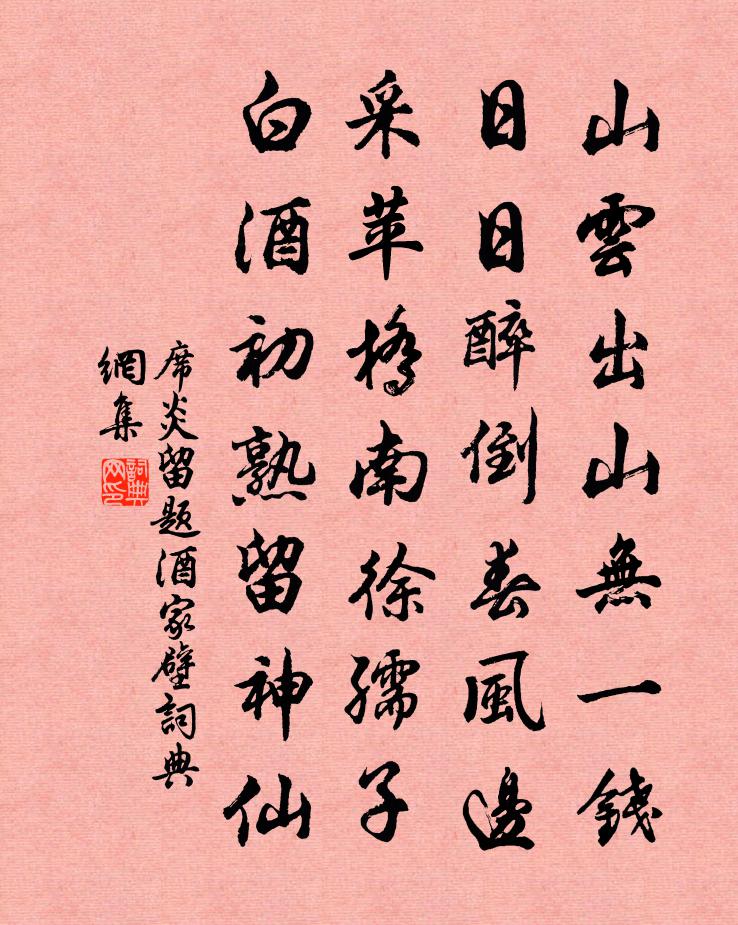 山雲出山無一錢
日日醉倒春風邊
采苹橋南徐孺子
白酒初熟留神仙
席炎留題酒家壁詞典
網集
詞典
网印